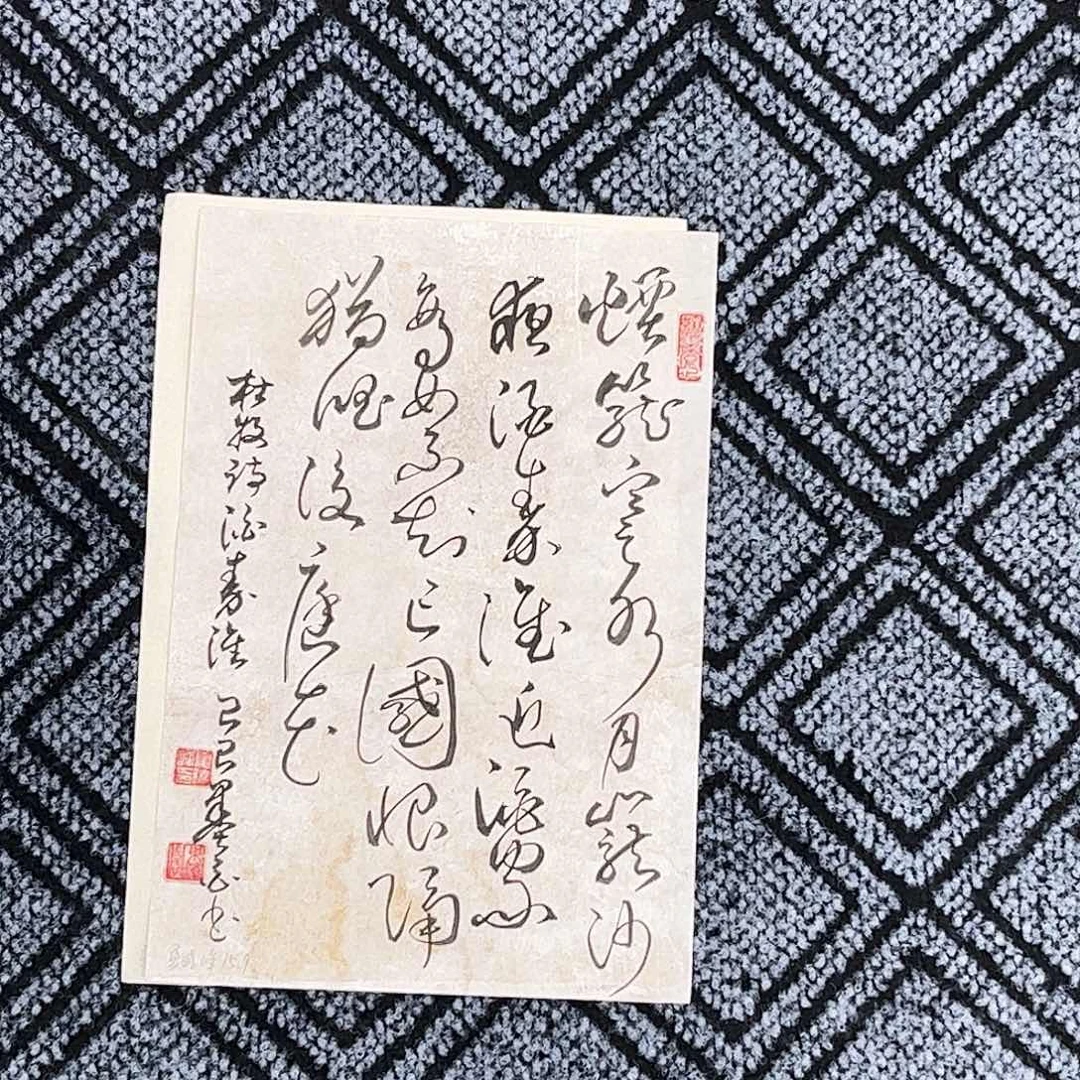 煙籠寒水月籠沙
夜泊秦淮近酒家
商女不知亡國恨隔
猶唱後庭花
杜牧詩泊秦淮 巳 墨 書